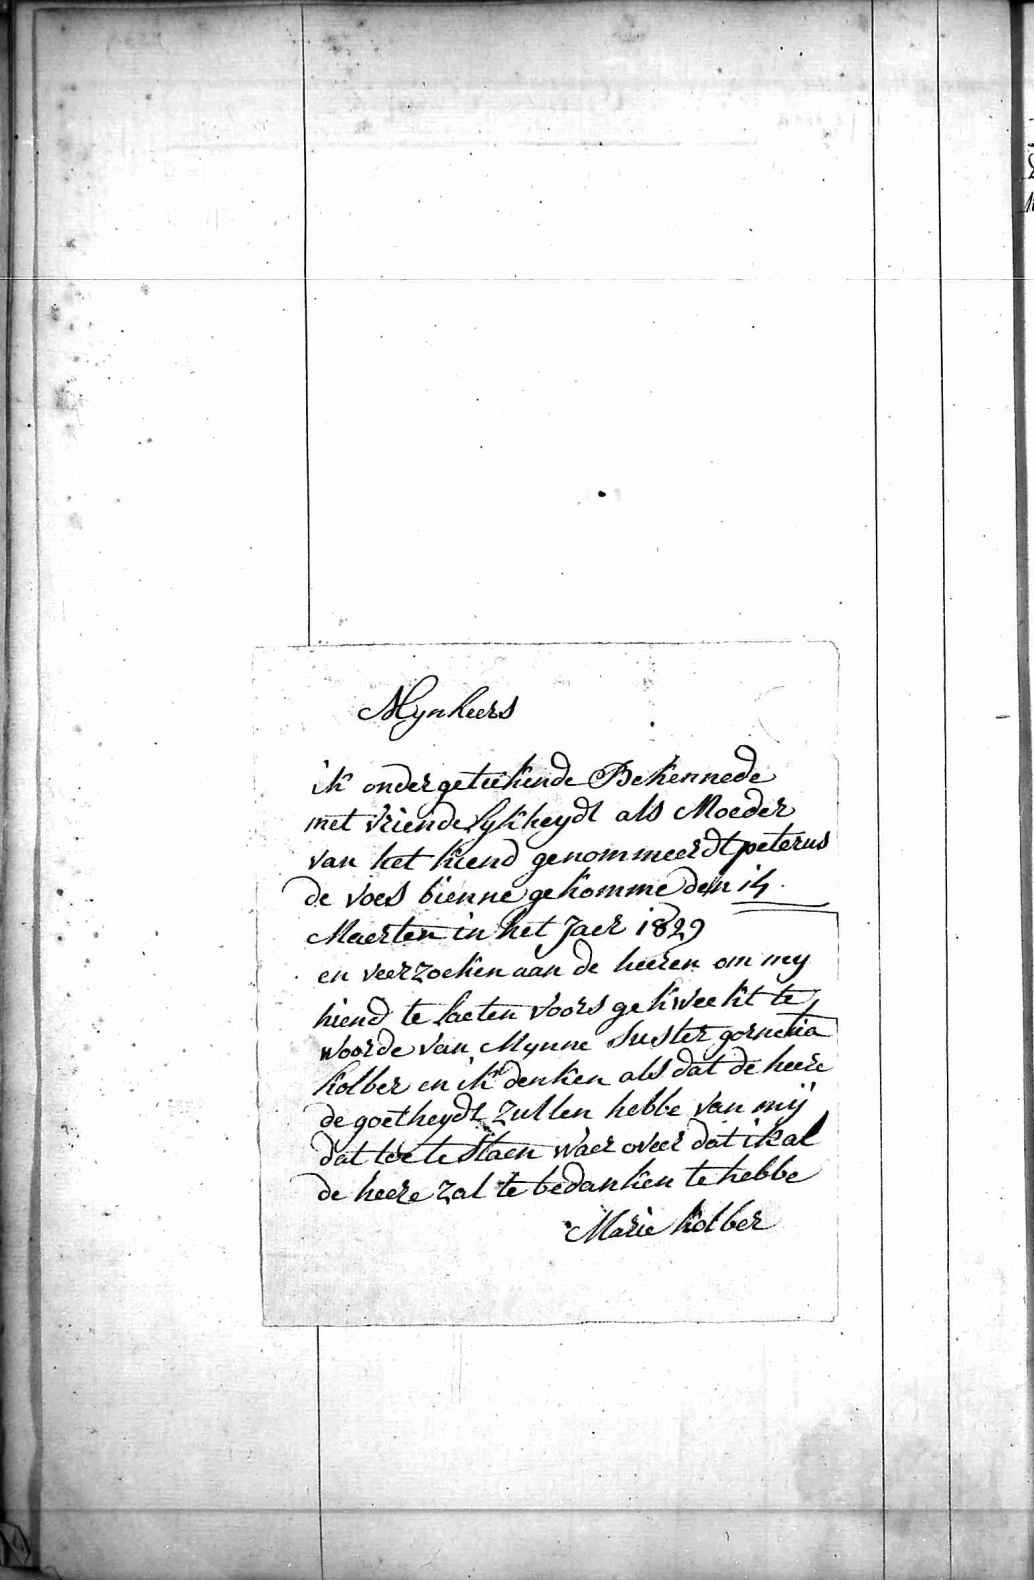 Mynheers
ik ondergetiekende Bekennede
met vriendelykheydt als Moeder
van het kiend genommeerdt peterus
de voes bienne gekomme den 14
Maerten in het Jaer 1829
en veerzoeken aan de heeren om my
kiend te laeten voors gekweekt te
woorde van Mynne Suster gornelia
kolber en ik denken als dat de heere
de goetheydt zullen hebbe van mij
dat toe te staen waer oveer dat ik al
de heere zal te bedanken te hebbe
Marie kolber